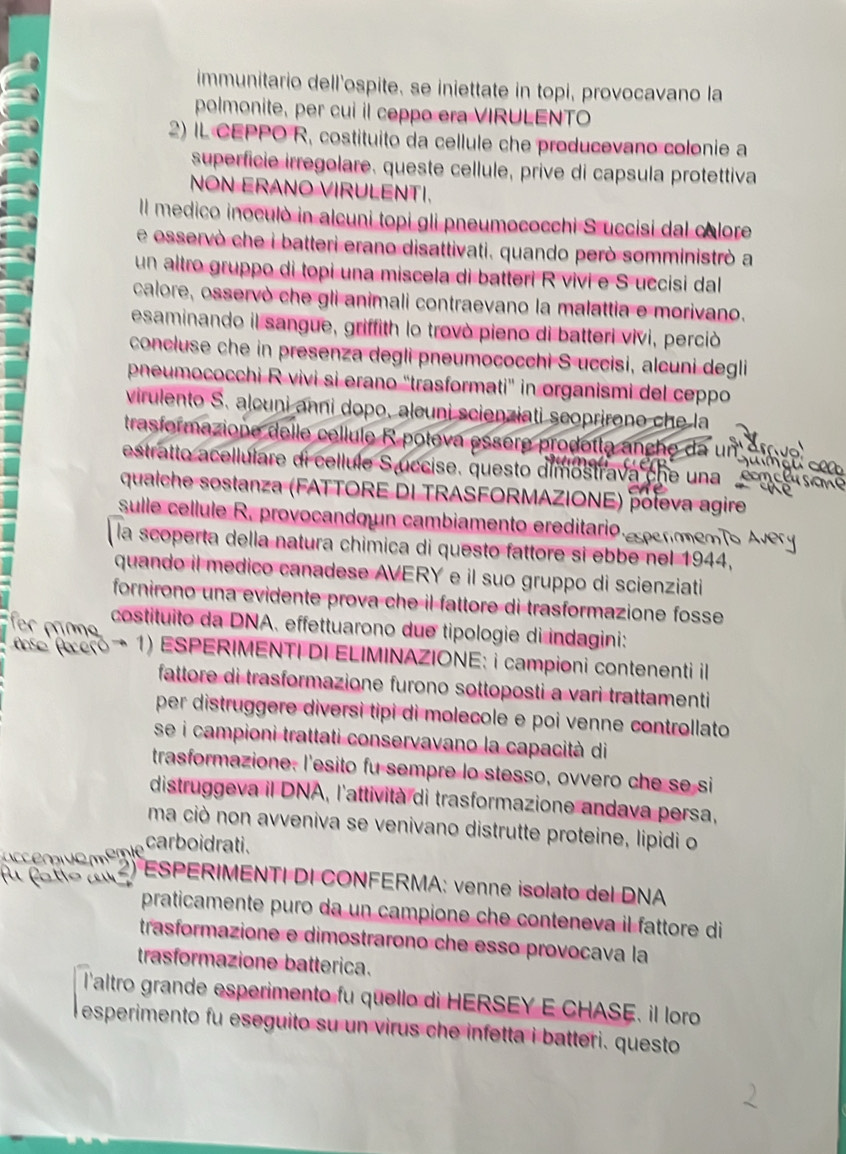 immunitario dell'ospite, se iniettate in topi, provocavano la
polmonite, per cui il ceppo era VIRULENTO
2) IL CEPPO R, costituito da cellule che producevano colonie a
superficie irregolare. queste cellule, prive di capsula protettiva
NON ERANO VIRULENTI.
Il medico inoculò in alcuni topi gli pneumococchi S uccisi dal calore
e osservò che i batteri erano disattivati. quando però somministrò a
un altro gruppo di topi una miscela di batteri R vivi e S uccisi dal
calore, osservò che gli animali contraevano la malattia e morivano.
esaminando il sangue, griffith lo trovò pieno di batteri vivi, perciò
concluse che in presenza degli pneumococchi S uccisi, alcuni degli
pneumococchi R vivi si erano "trasformati" in organismi del ceppo
virulento S. alcuni anni dopo, alcuni scienziati scoprirono che la
trasformazione delle cellule R poteva essere prodotta anche da un
si arrivò
estratto acellulare di cellule S uccise. questo dimostrava che una
quindi alla
conclusione
che
qualche sostanza (FATTORE DI TRASFORMAZIONE) poteva agire
sulle cellule R, provocando un cambiamento ereditario.
esperimento Avery
la scoperta della natura chimica di questo fattore si ebbe nel 1944,
quando il medico canadese AVERY e il suo gruppo di scienziati
fornirono una evidente prova che il fattore di trasformazione fosse
costituito da DNA. effettuarono due tipologie di indagini:
Per prima
cosa fecero → 1) ESPERIMENTI DI ELIMINAZIONE: i campioni contenenti il
fattore di trasformazione furono sottoposti a vari trattamenti
per distruggere diversi tipi di molecole e poi venne controllato
se i campioni trattati conservavano la capacità di
trasformazione. l'esito fu sempre lo stesso, ovvero che se si
distruggeva il DNA, l'attività di trasformazione andava persa,
ma ciò non avveniva se venivano distrutte proteine, lipidi o
carboidrati.
uccessivamente
fu fatto
2) ESPERIMENTI DI CONFERMA: venne isolato del DNA
praticamente puro da un campione che conteneva il fattore di
trasformazione e dimostrarono che esso provocava la
trasformazione batterica.
l'altro grande esperimento fu quello di HERSEY E CHASE. il loro
esperimento fu eseguito su un virus che infetta i batteri. questo
2